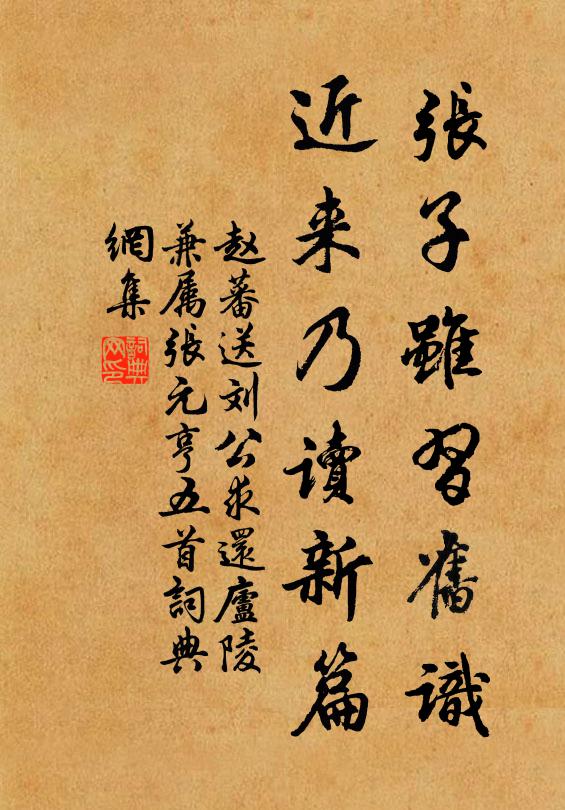 張子雖習舊識
近来乃讀新篇
赵蕃送刘公求還廬陵
兼属張元亨五首詞典
網集
詞典
网印